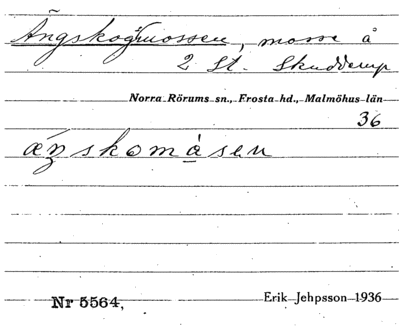 Ängskogmossen, mosse å
2 St. Skuddarp
Norra Rörums sn., Frosta hd., Malmöhus län
36
ä́ŋskomå̀sen
Nr 5564,
Erik Jehpsson 1936